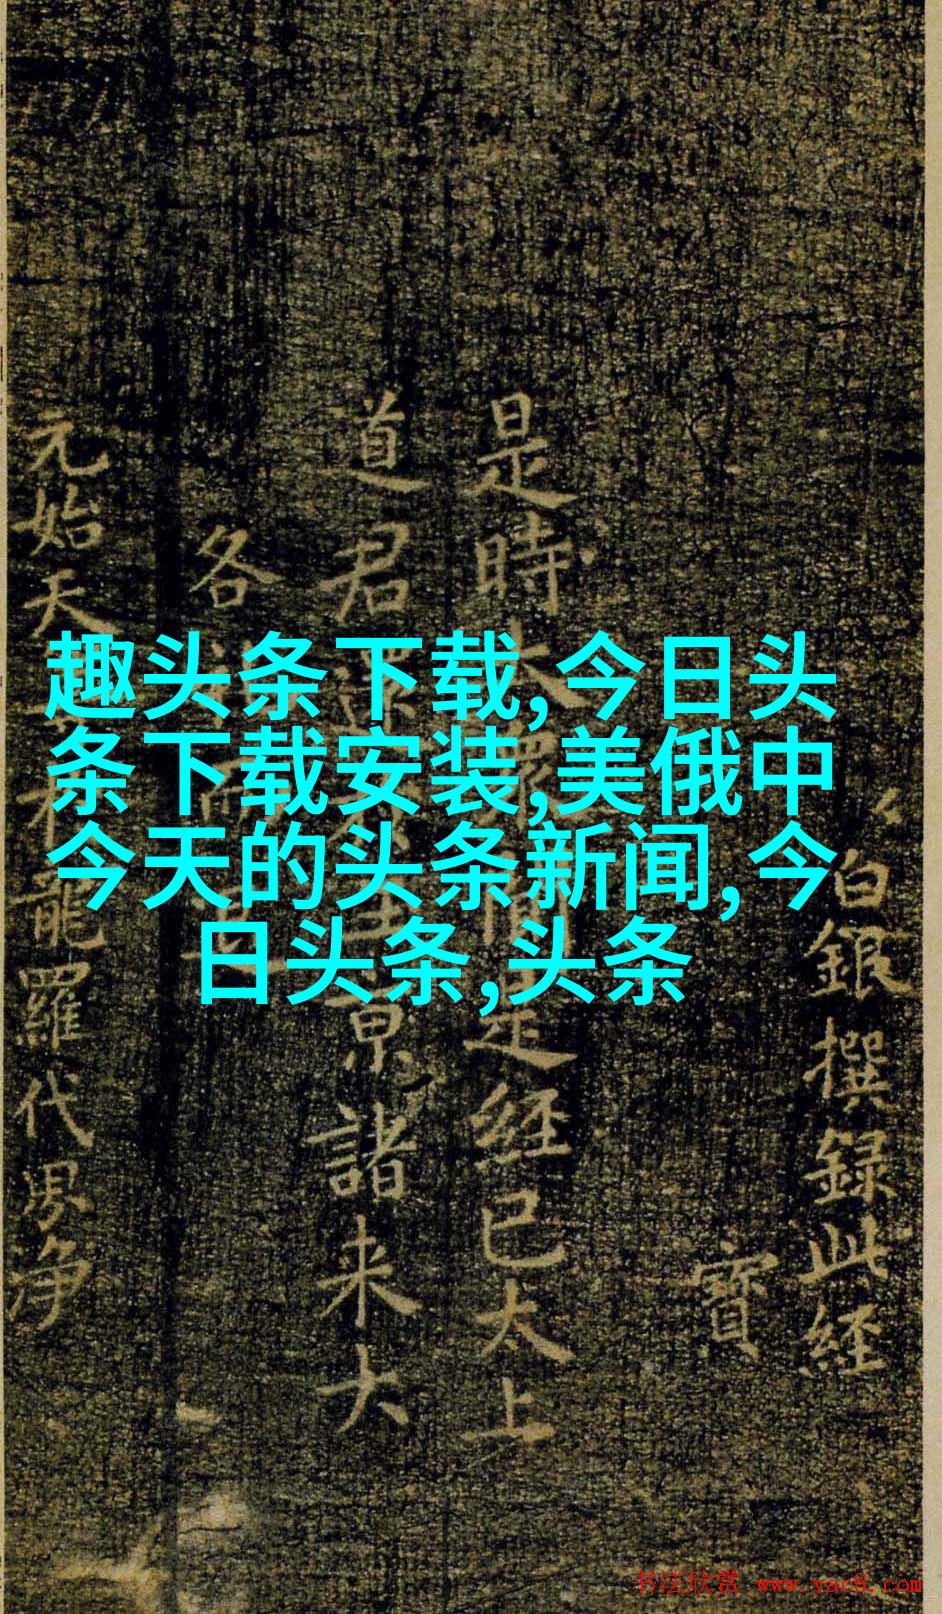 趣头条下载,今日头
条下载安装,美俄中
今天的头条新闻,今
日头条,头条
白銀撰録此經
寶
是時 是經已太上
道君 京諸来大
各
元始天 龍羅代界净
书法欣赏 www.yac8.com